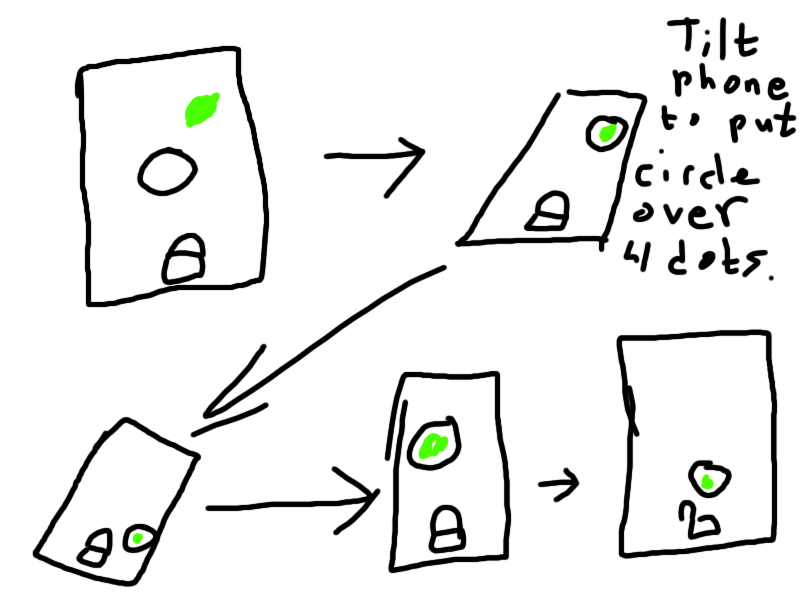 Tilt
phone
to put
circle
over
4 dots.